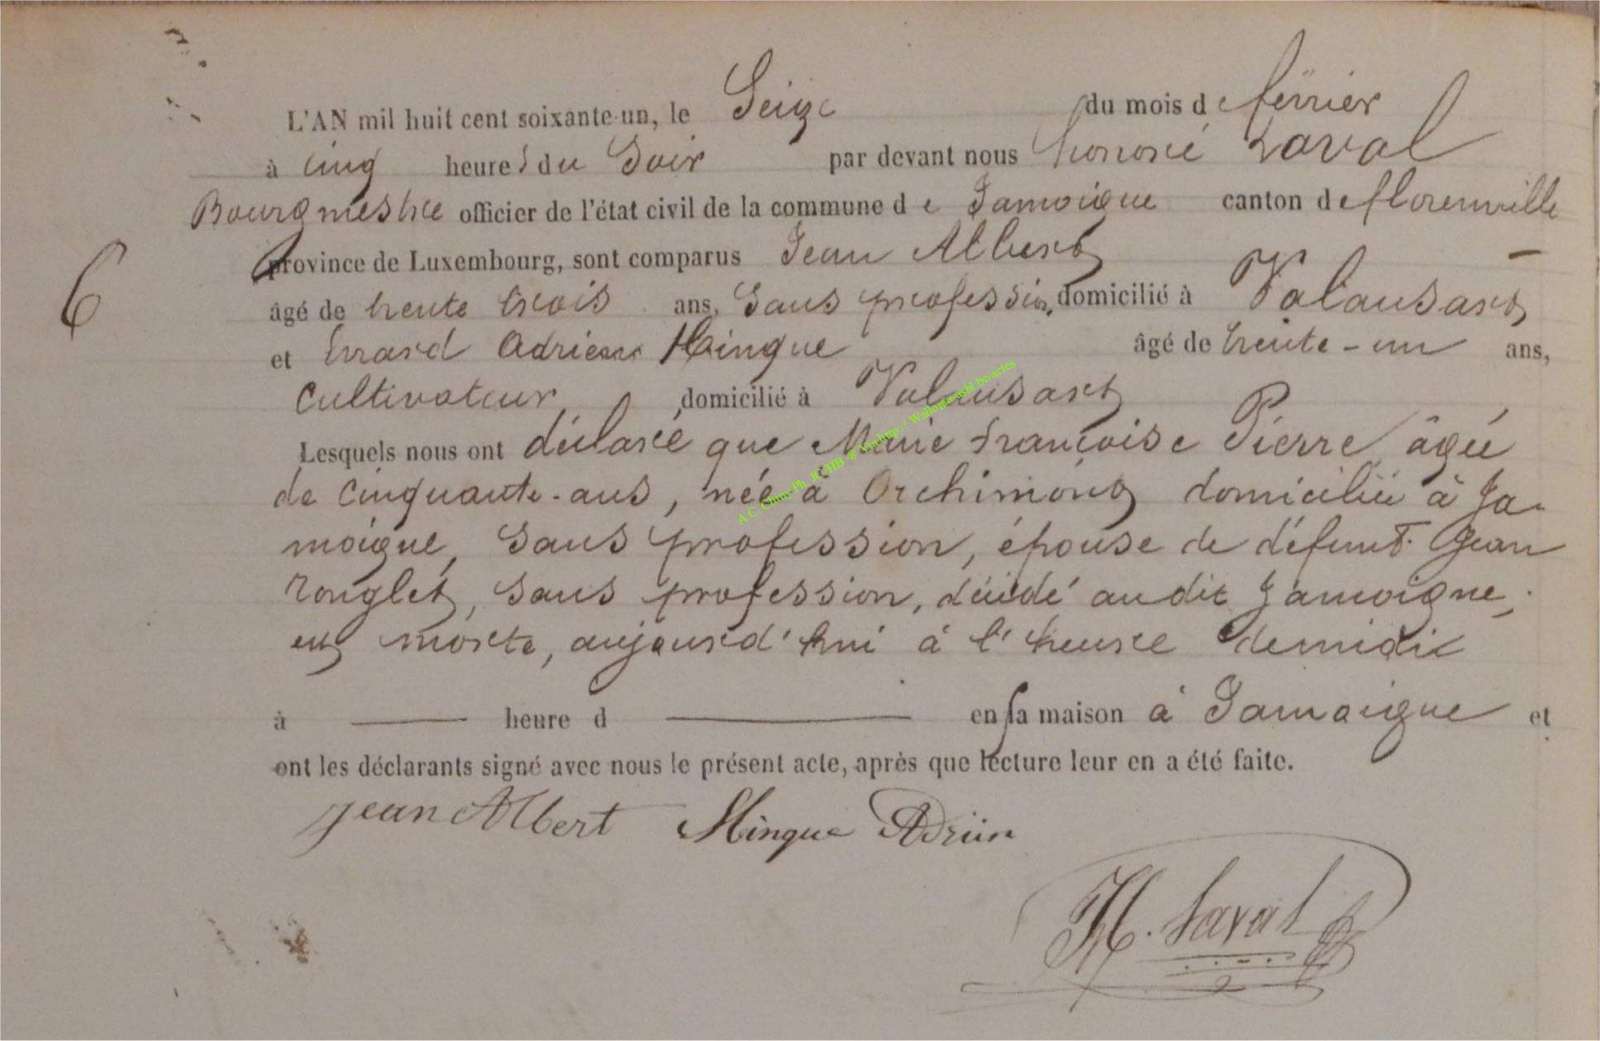 L'AN mil huit cent soixante-un, le Seize du mois de février
à cinq heures du Soir par devant nous honoré Laval
Bourgmestre officier de l'état civil de la commune de Jamoigne canton de florenville
province de Luxembourg, sont comparus Jean Albert
6
âgé de trente trois ans, Sans profession, domicilié à Valansart
et Errard Adrien Hinque âgé de trente-un ans,
Cultivateur, domicilié à Valansart
Lesquels nous ont déclaré que Marie françoise Pierre, âgée
de cinquante-ans, née à Orchimont domiciliée à Ja-
moigne, Sans profession, épouse de défunt Jean
Ronglet, Sans profession, décédé audit Jamoigne,
est morte, aujourd'hui à l'heure demidie
à heure d en sa maison à Jamoigne et
ont les déclarants signé avec nous le présent acte, après que lecture leur en a été faite.
Jean Albert Hinque Adrien
H. Laval